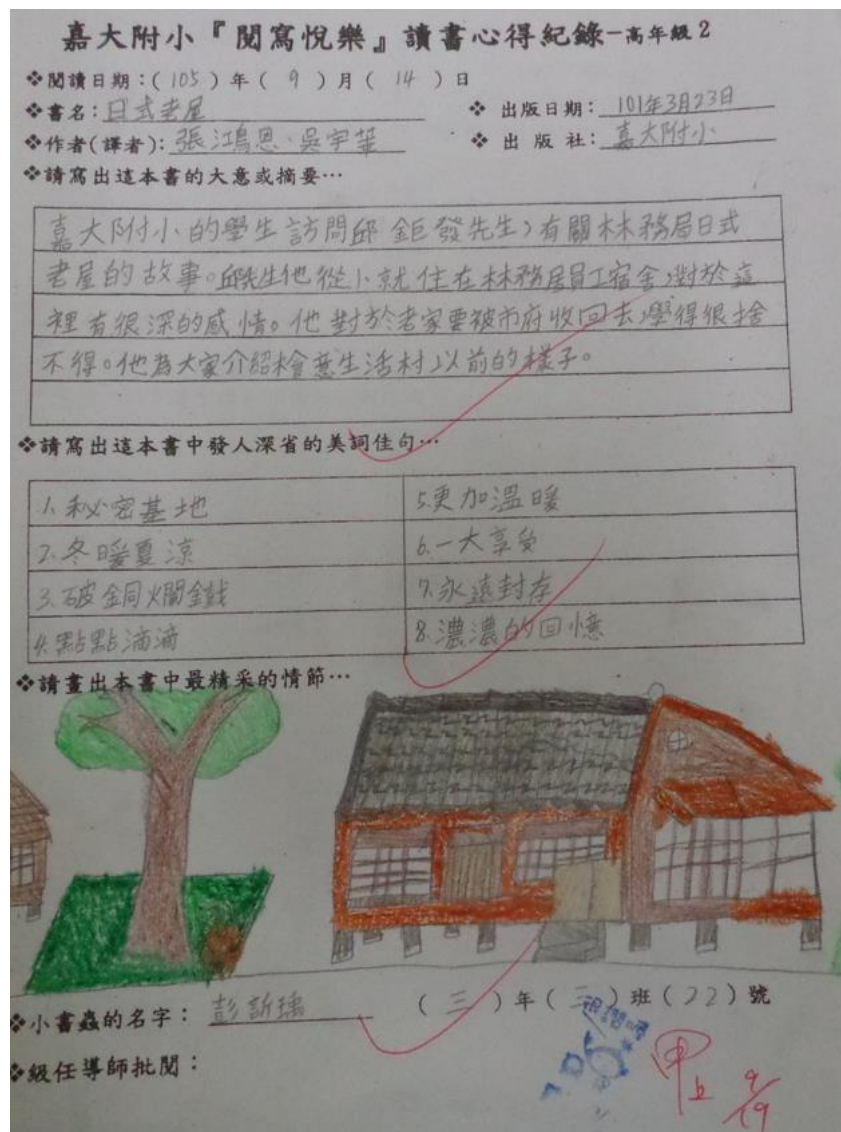 嘉大附小『閱寫悅樂』讀書心得紀錄-高年級2
❖閱讀日期：(105)年(9)月(14)日
❖書名：日式老屋 ❖出版日期：101年3月23日
❖作者(譯者)：張鴻恩、吳宇華 ❖出版社：嘉大附小
❖請寫出這本書的大意或摘要…
嘉大附小的學生訪問邱鉅發先生，有關林務局日式
老屋的故事。邱先生他從小就住在林務局員工宿舍，對於這
裡有很深的感情。他對於老家要被市府收回去，覺得很捨
不得。他為大家介紹檜意生活村以前的樣子。
❖請寫出這本書中發人深省的美詞佳句…
1.秘密基地 5.更加溫暖
2.冬暖夏涼 6.一大享受
3.破銅爛鐵 7.永遠封存
4.點點滴滴 8.濃濃的回憶
❖請畫出本書中最精采的情節…
❖小書蟲的名字：彭訢 (三)年(二)班(22)號
❖級任導師批閱：
甲上 9/19